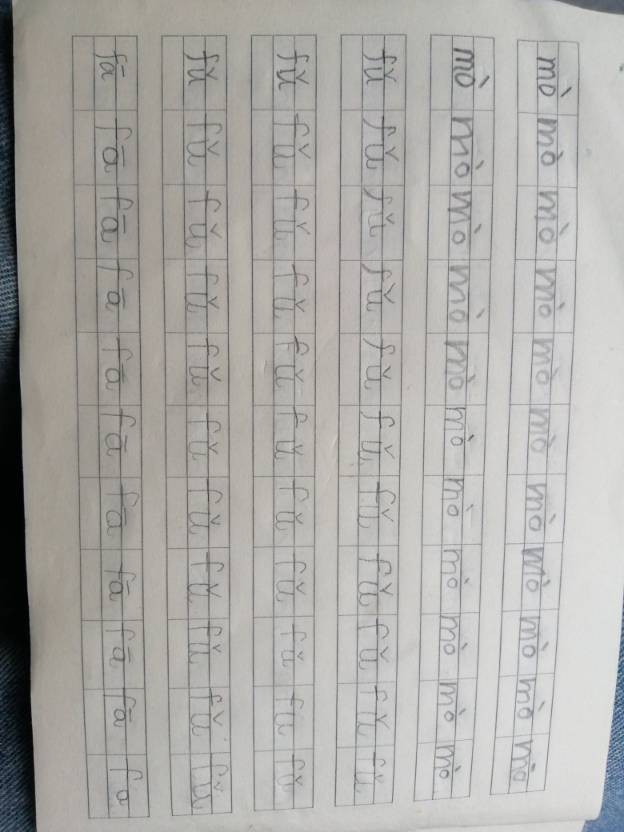 mò mò mò mò mò mò mò mò mò mò mò
mò mò mò mò mò mò mò mò mò mò mò
fǔ fǔ fǔ fǔ fǔ fǔ fǔ fǔ fǔ fǔ fǔ
fǔ fǔ fǔ fǔ fǔ fǔ fǔ fǔ fǔ fǔ fǔ
fǔ fǔ fǔ fǔ fǔ fǔ fǔ fǔ fǔ fǔ fǔ
fā fā fā fā fā fā fā fā fā fā fā